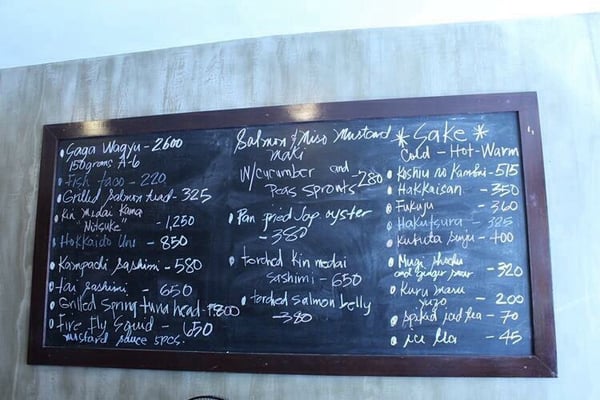 • Saga Wagyu - 2600
150grams A-6
• Fish taco - 220
• Grilled Salmon tund - 325
• Kin medai Kama
"Nitsuke" - 1,250
• Hokkaido Uni - 850
• Kampachi Sashimi - 580
• Tai sashimi - 650
• Grilled Spring tuna head - 1800
• Fire Fly Squid - 650
mustard sauce 5pcs.
Salmon & Miso Mustard
maki
w/cucumber and
Peas Sprouts - 280
• Pan fried Jap oyster
- 380
• torched Kin medai
Sashimi - 650
• torched Salmon belly
- 380
* Sake *
Cold - Hot - Warm
• Koshiu no Kambai - 515
• Hakkaisan - 350
• Fukuju - 360
• Hakutsuru - 325
• Kubota senju - 400
• Mugi shochu
and ginger pear - 320
• Kuru maru
yuzo - 200
• Spiked iced tea - 70
• ice tea - 45